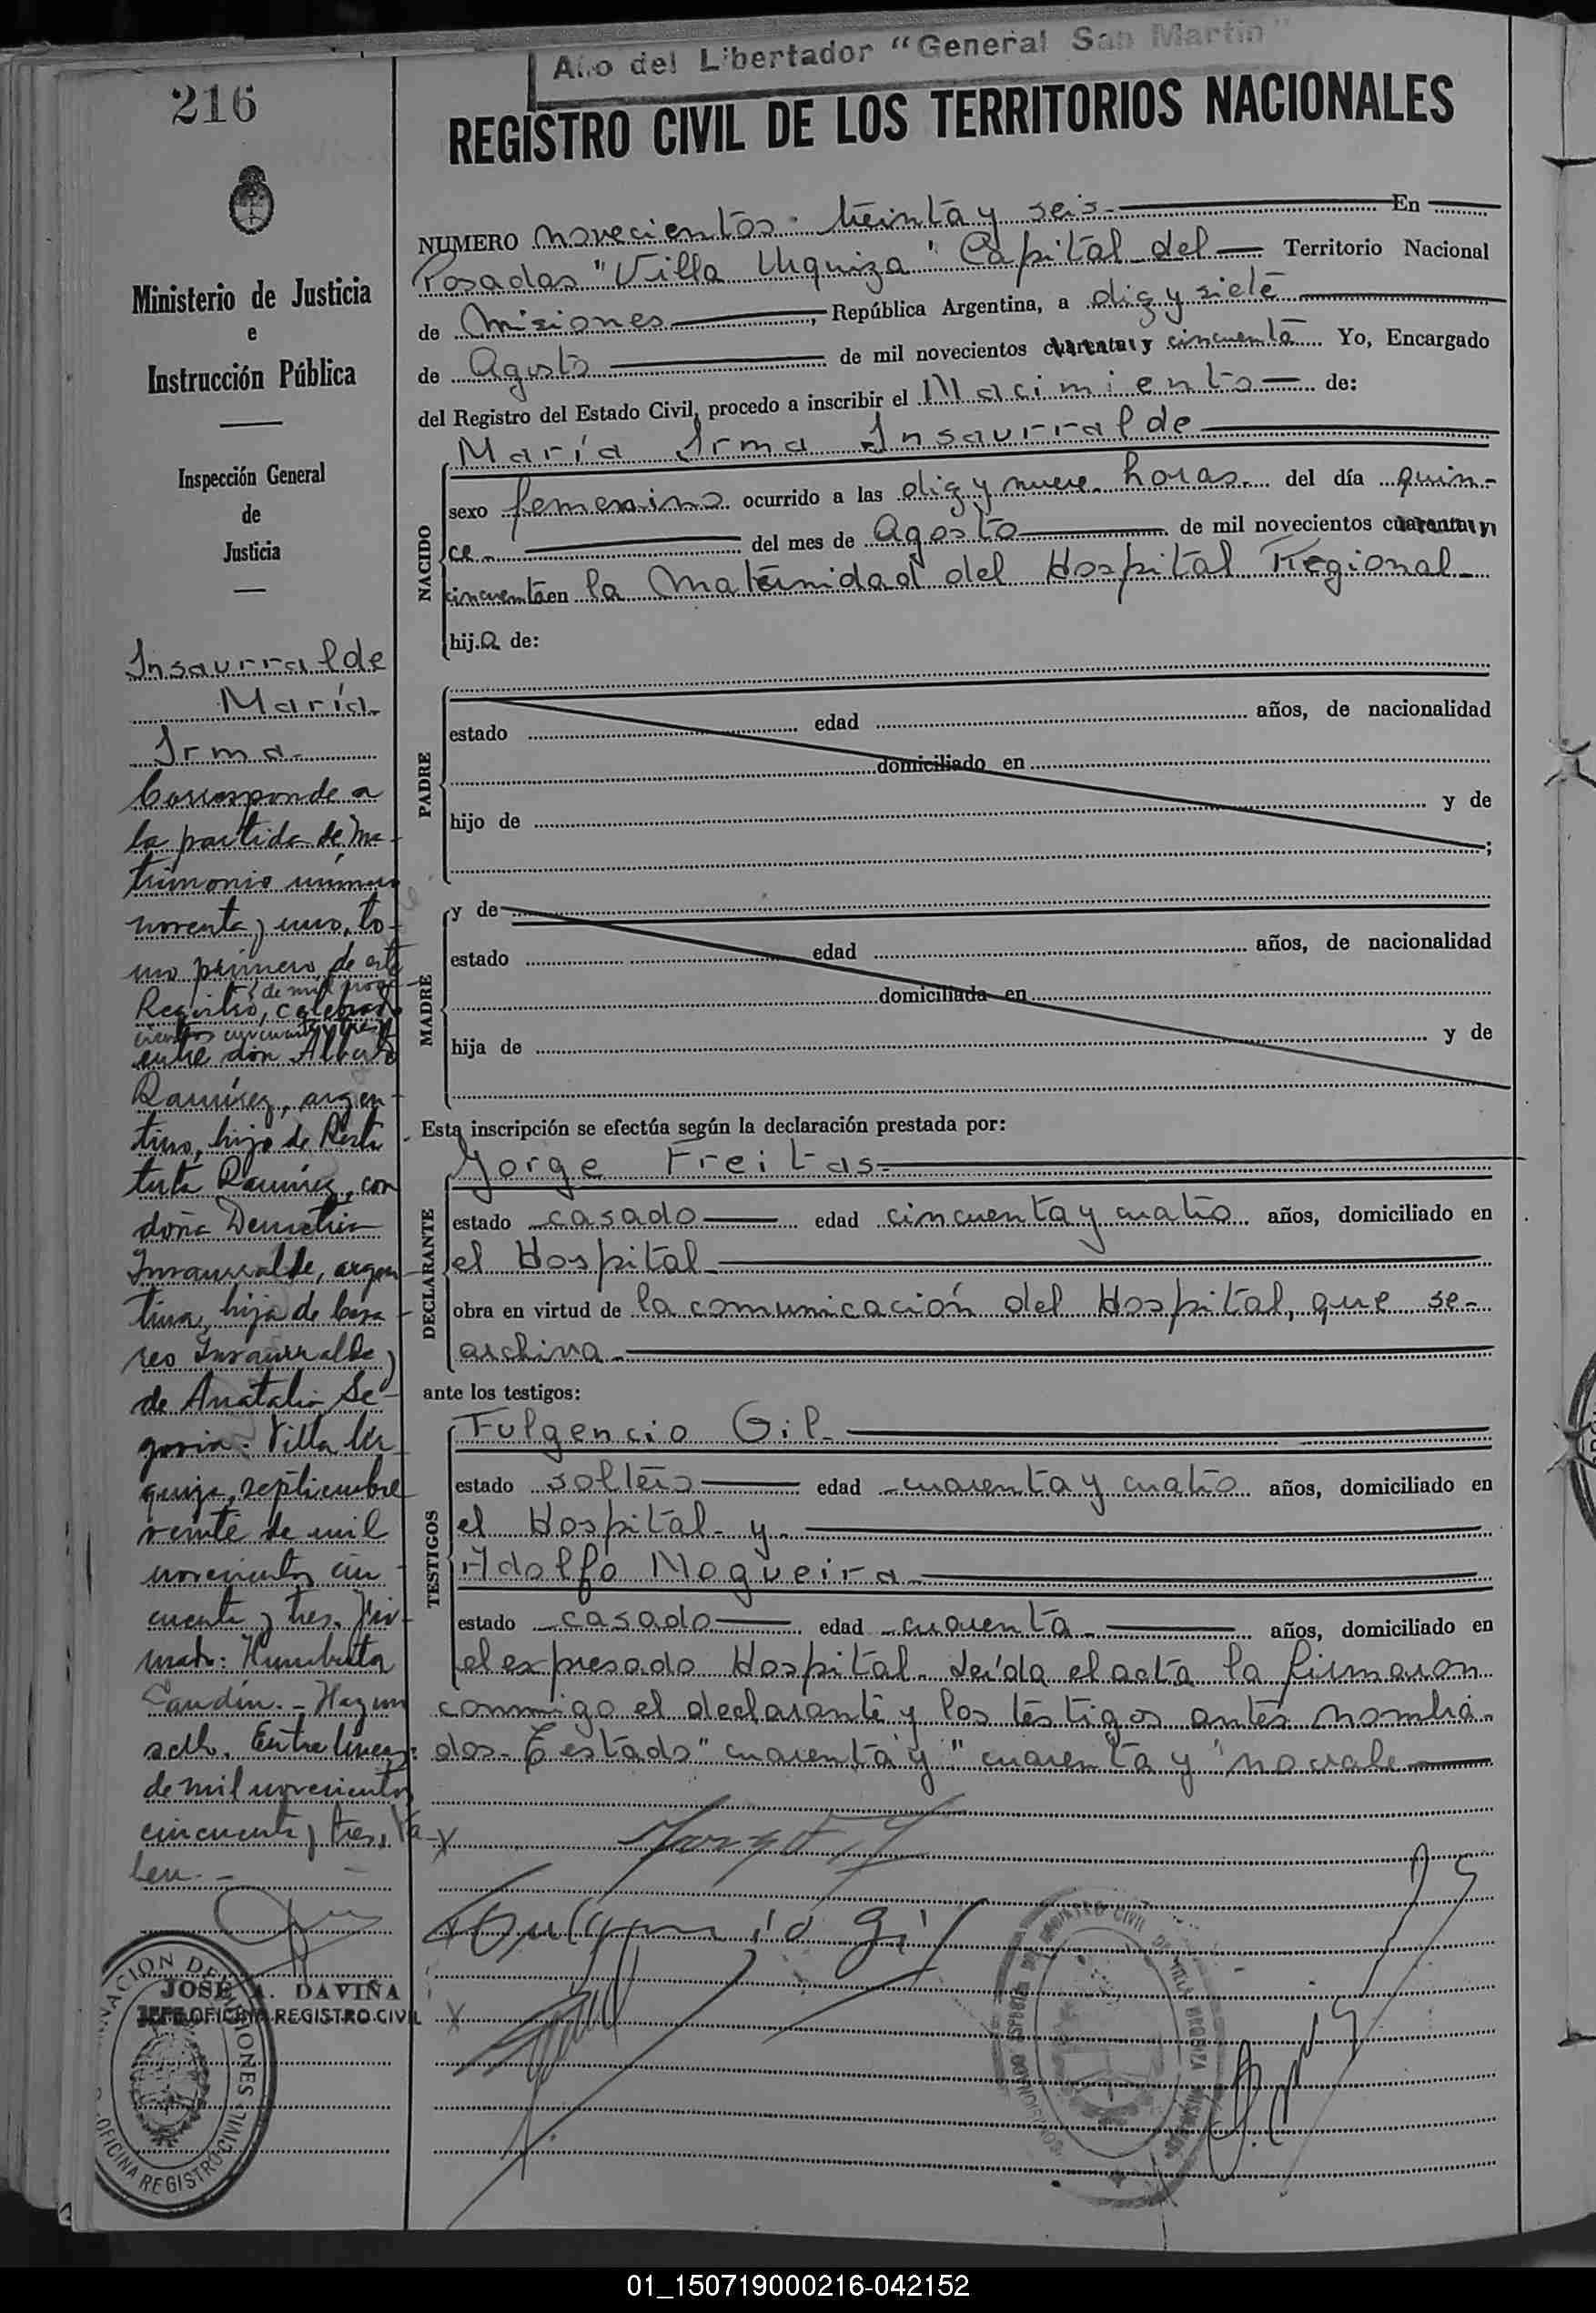 Año del Libertador "General San Martin"
216
REGISTRO CIVIL DE LOS TERRITORIOS NACIONALES
Ministerio de Justicia
e
Instrucción Pública
Inspección General
de
Justicia
Insaurralde
María
Irma
Corresponde a
la partida de ma-
trimonio número
noventa y uno, to-
mo primero de este
de mil nove-
Registro, celebrado
cientos cincuenta y tres
entre don Alberto
Ramírez, argen-
tino, hijo de
Ramírez, con
doña Demetria
Insaurralde, argen-
tina, hija de Cesa-
reo Insaurralde y
de Anatalia Se-
govia. Villa Ur-
quiza, septiembre
veinte de mil
novecientos cin-
cuenta y tres. Fir-
mado:
Hay un
sello. Entre líneas:
de mil novecientos
cincuenta y tres. Va-
len.-
JOSE A. DAVIÑA
JEFE OFICINA REGISTRO CIVIL
OFICINA REGISTRO CIVIL
NUMERO novecientos treinta y seis.- En
Posadas "Villa Urquiza" Capital del Territorio Nacional
de Misiones, República Argentina, a diez y siete
de Agosto de mil novecientos cuarenta y cincuenta Yo, Encargado
del Registro del Estado Civil, procedo a inscribir el Nacimiento de:
María Irma Insaurralde
NACIDO
sexo femenino ocurrido a las diez y nueve horas del día quin-
ce.- del mes de Agosto de mil novecientos cuarenta y
cincuenta en la Maternidad del Hospital Regional.-
hij.a de:
PADRE
estado edad años, de nacionalidad
domiciliado en
hijo de y de
;
MADRE
y de
estado edad años, de nacionalidad
domiciliada en
hija de y de
Esta inscripción se efectúa según la declaración prestada por:
DECLARANTE
Jorge Freitas
estado casado edad cincuenta y cuatro años, domiciliado en
el Hospital
obra en virtud de la comunicación del Hospital, que se-
archiva
ante los testigos:
TESTIGOS
Fulgencio Gil
estado soltero edad cuarenta y cuatro años, domiciliado en
el Hospital y
Adolfo Nogueira
estado casado edad cuarenta años, domiciliado en
el expresado Hospital. Leída el acta la firmaron
conmigo el declarante y los testigos antes nombra-
dos.- Testado "cuarenta y" "cuarenta y" no vale
Fulgencio Gil
01_150719000216-042152